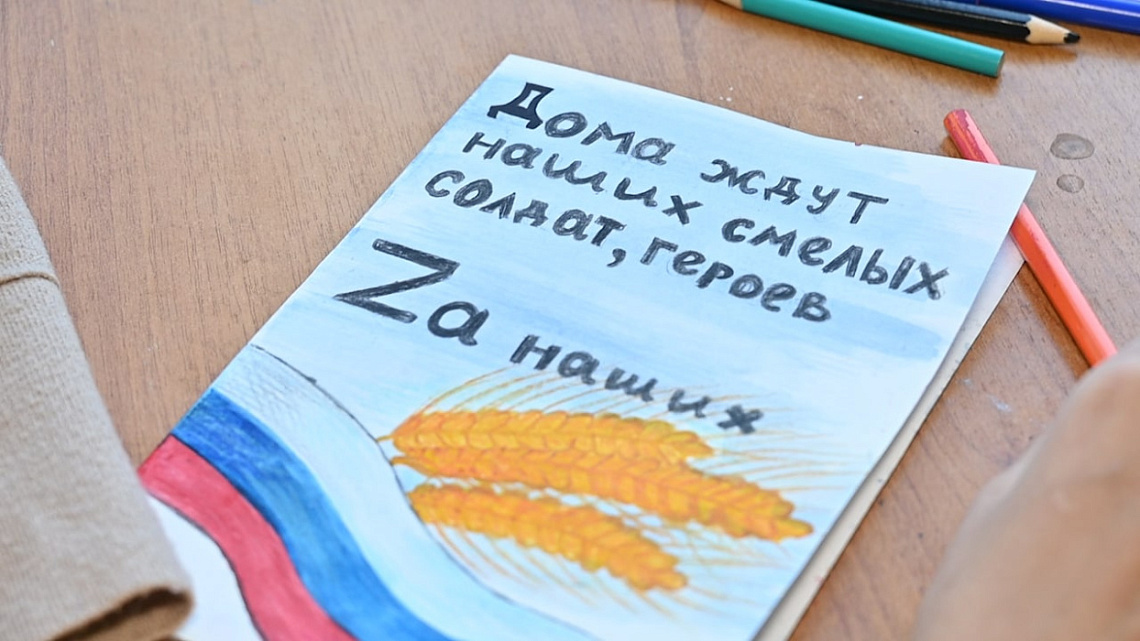 Дома ждут
наших смелых
солдат, героев
Zа наших